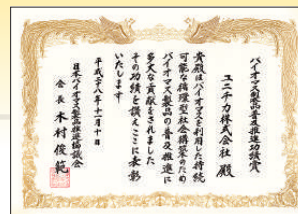 バイオマス製品普及推進功績賞
ユニチカ株式会社 殿
貴殿はバイオマスを利用した持続
可能な循環型社会構築のため
バイオマス製品の普及推進に
多大な貢献をされました
その功績を讃えここに表彰
いたします
平成二十八年十一月十日
日本バイオマス製品推進協議会
会長 木村俊範